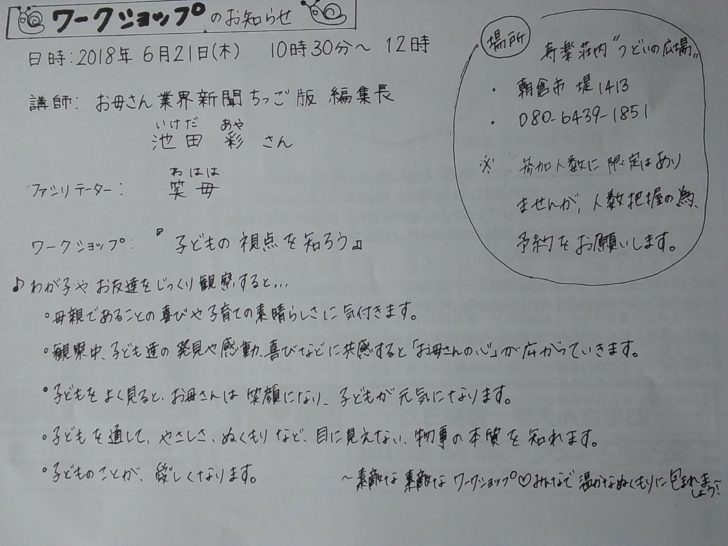 ワークショップのお知らせ
日時:2018年6月21日(木) 10時30分〜12時
講師: お母さん業界新聞ちっご版 編集長
いけだ あや
池田 彩 さん
わはは
ファシリテーター: 笑母
ワークショップ:『子どもの視点を知ろう』
場所
寿楽荘内"つどいの広場"
・朝倉市 堤1413
・080-6439-1851
※ 参加人数に限定はあり
ませんが、人数把握の為、
予約をお願いします。
♪わが子やお友達をじっくり観察すると...
・母親であることの喜びや子育ての素晴らしさに気付きます。
・観察中、子ども達の発見や感動、喜びなどに共感すると「お母さんの心」が広がっていきます。
・子どもをよく見ると、お母さんは笑顔になり、子どもが元気になります。
・子どもを通して、やさしさ、ぬくもりなど、目に見えない、物事の本質を知れます。
・子どものことが、愛しくなります。
〜素敵な素敵なワークショップ♡みんなで温かなぬくもりに包まれましょう〜